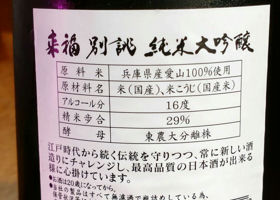 来福 別誂 純米大吟醸
原料米 兵庫県産愛山100%使用
原材料名 米(国産)、米こうじ(国産米)
アルコール分 16度
精米歩合 29%
酵母 東農大分離株
江戸時代から続く伝統を守りつつ、常に新しい酒
造りにチャレンジし、最高品質の日本酒が出来る
様に心掛けています。
●お酒は20歳になってから。